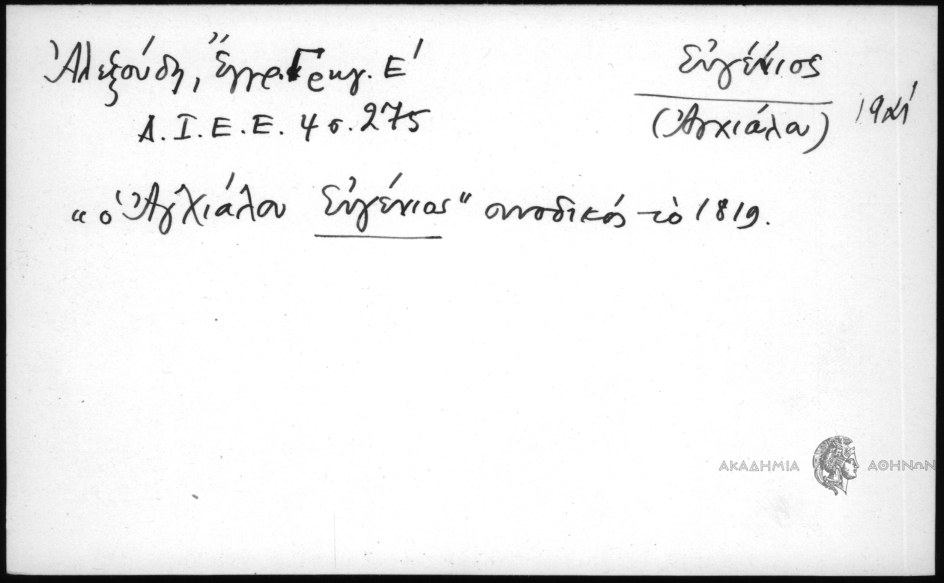 Ἀλεξούδη, Ἔγγρ. Γρηγ. Ε'
Δ.Ι.Ε.Ε. 4 σ. 275
Εὐγένιος
(Ἀγχιάλου)
"ὁ Ἀγχιάλου Εὐγένιος" συνοδικός τὸ 1819.
ΑΚΑΔΗΜΙΑ ΑΘΗΝΩΝ